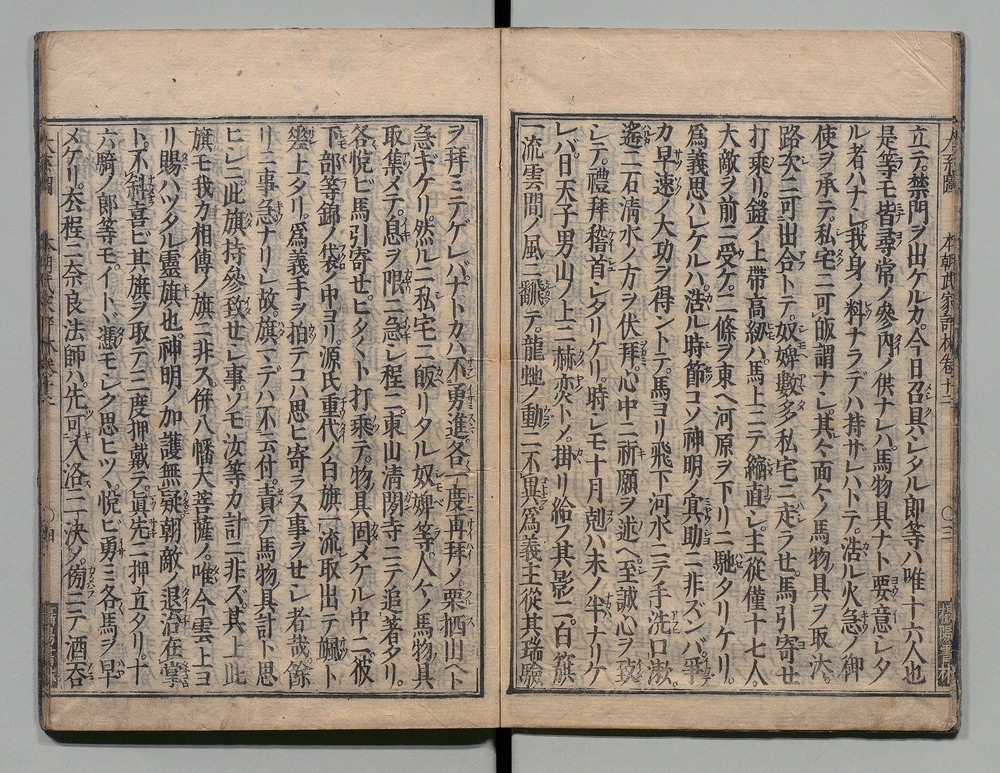 立テ。禁門ヲ出ケルカ。今日召具シタル郎等ハ。唯十六人也
是等モ皆尋常ノ參內ノ供ナレハ。馬物具ナト要意シタ
ル者ハナシ。我身ノ料ナラデハ持サレハトテ。浩ル火急ノ御
使ヲ承テ。私宅ニ可皈謂ナシ。其々面々ノ馬物具ヲ取テ。
路次ニ可出合トテ。奴婢數多私宅ニ走ラせ。馬引寄せ
打乘リ。鎧ノ上帶高紐ハ。馬上ニテ縮直シ。主從僅十七人。
大敵ヲ前ニ受ケ。二條ヲ東ヘ河原ヲ下リニ馳タリケリ。
爲義思ハレケルハ。浩ル時節コソ神明ノ冥助ニ非ズンハ。爭
カ早速ノ大功ヲ得ントテ。馬ヨリ飛下河水ニテ手洗口漱。
遙ニ石清水ノ方ヲ伏拜。心中ニ祈願ヲ述ヘ至誠心ヲ致
シテ。禮拜稽首シタリケリ。時シモ十月剋ハ未ノ半ナリケ
レバ。日天子男山ノ上ニ赫奕トメ。掛リ給フ其影ニ。百籏
一流雲間ノ風ニ飜テ。龍虵ノ動ニ不異。爲義主從其瑞驗
ヲ拜ミテゲレバ。ナトカハ不勇進。各一度再拜メ。栗栖山ヘト
急ギケリ。然ルニ私宅ニ皈リタル奴婢等。人ケノ馬物具
取集メテ。息ヲ限ニ急シ程ニ。東山清閑寺ニテ追著タリ。
各悅ビ馬引寄せ。ヒタ〱ト打乘テ。物具固メケル中ニ。彼
下部等錦ノ袋ノ中ヨリ。源氏重代ノ白旗一流取出テ。颯ト
差上タリ。爲義手ヲ拍テ。コハ思ヒ寄ラス事ヲせシ者哉。餘
リニ事急ナリシ故。旗マデハ不云付。責テ馬物具計ト思
ヒシニ。此旗持參致せシ事。ソモ汝等カ計ニ非ズ。其上此
旗モ我カ相傳ノ旗ニ非ス。併八幡大菩薩ノ。唯今雲上ヨ
リ賜ハツタル靈旗也。神明ノ加護無疑。朝敵ノ退治在掌
ト。不斜喜ビ。其旗ヲ取テ三度押戴テ。眞先ニ押立タリ。十
六騎ノ郎等モ。イトヾ憑モシク思ヒツヽ。悅ビ勇ミ各馬ヲ早
メケリ。去程ニ奈良法師ハ。先可入洛ニ一決ノ。傍ニテ酒呑